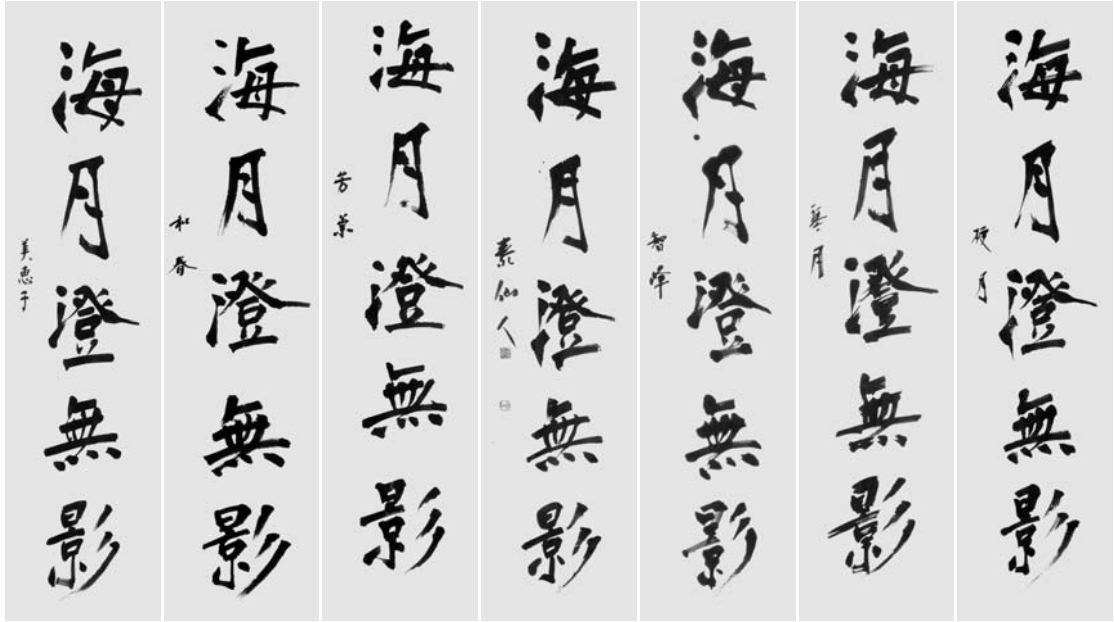 海月澄無影
硬月
海月澄無影
月
海月澄無影
智
海月澄無影
素仙人
海月澄無影
芳葉
海月澄無影
和春
海月澄無影
美恵子